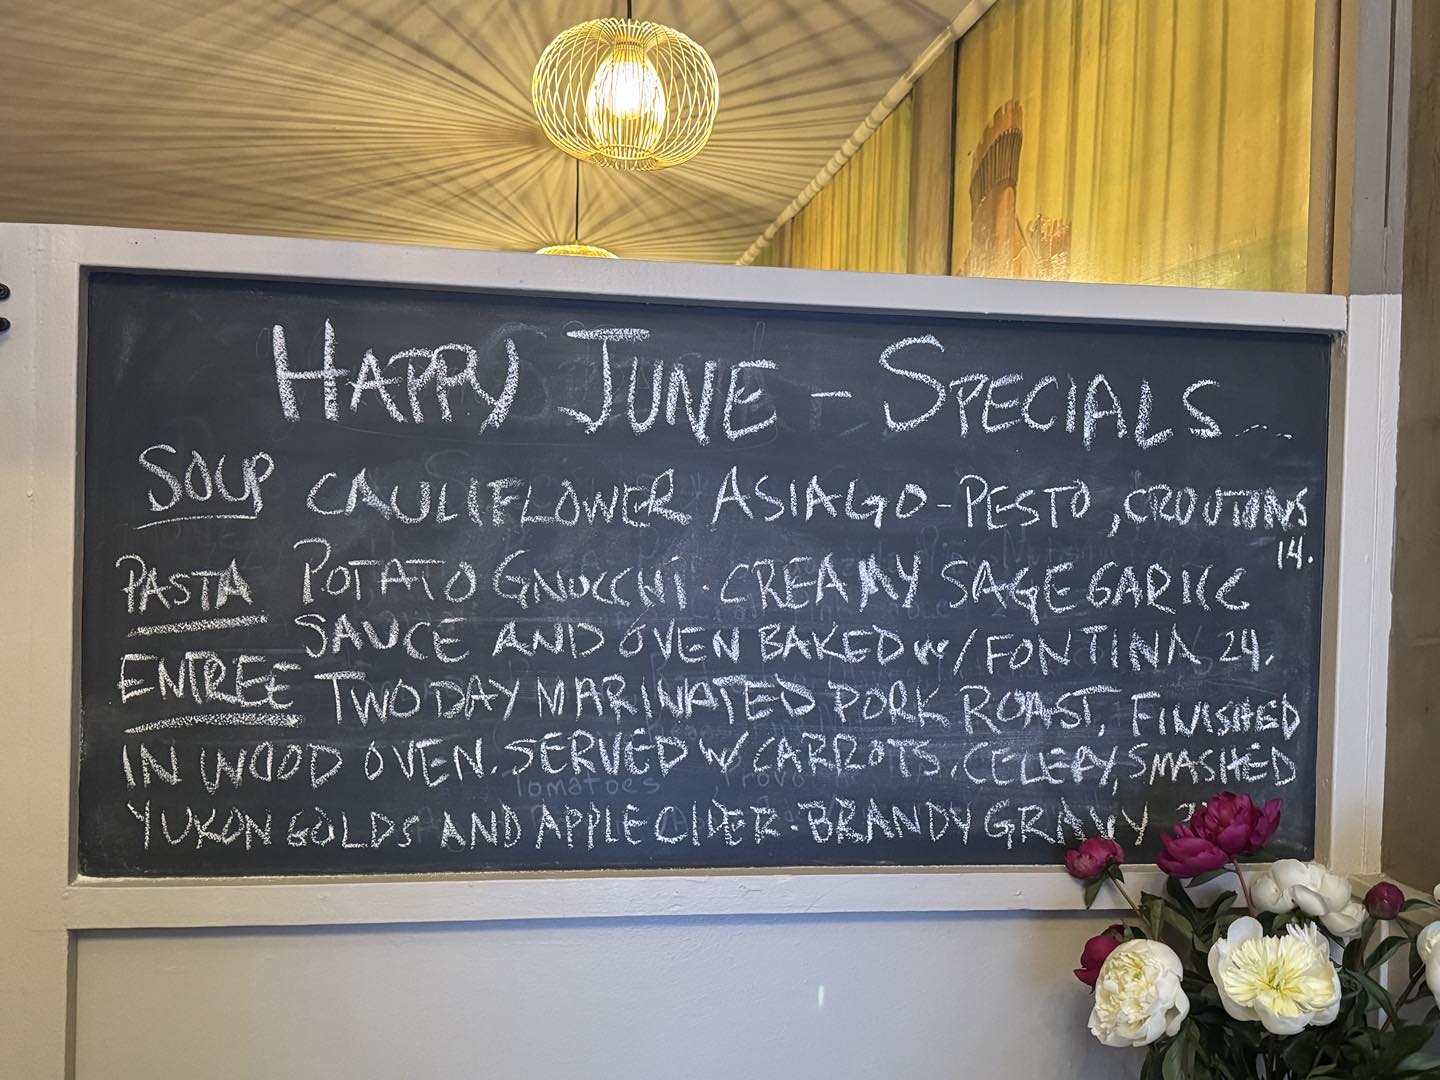 HAPPY JUNE - SPECIALS...
SOUP CAULIFLOWER ASIAGO-PESTO, CROUTONS
14.
PASTA POTATO GNOCCHI. CREAMY SAGE GARLIC
SAUCE AND OVEN BAKED w/ FONTINA 24.
ENTREE TWO DAY MARINATED PORK ROAST, FINISHED
IN WOOD OVEN. SERVED W CARROTS, CELERY, SMASHED
Tomatoes Provo
YUKON GOLDS AND APPLE CIDER. BRANDY GRAVY